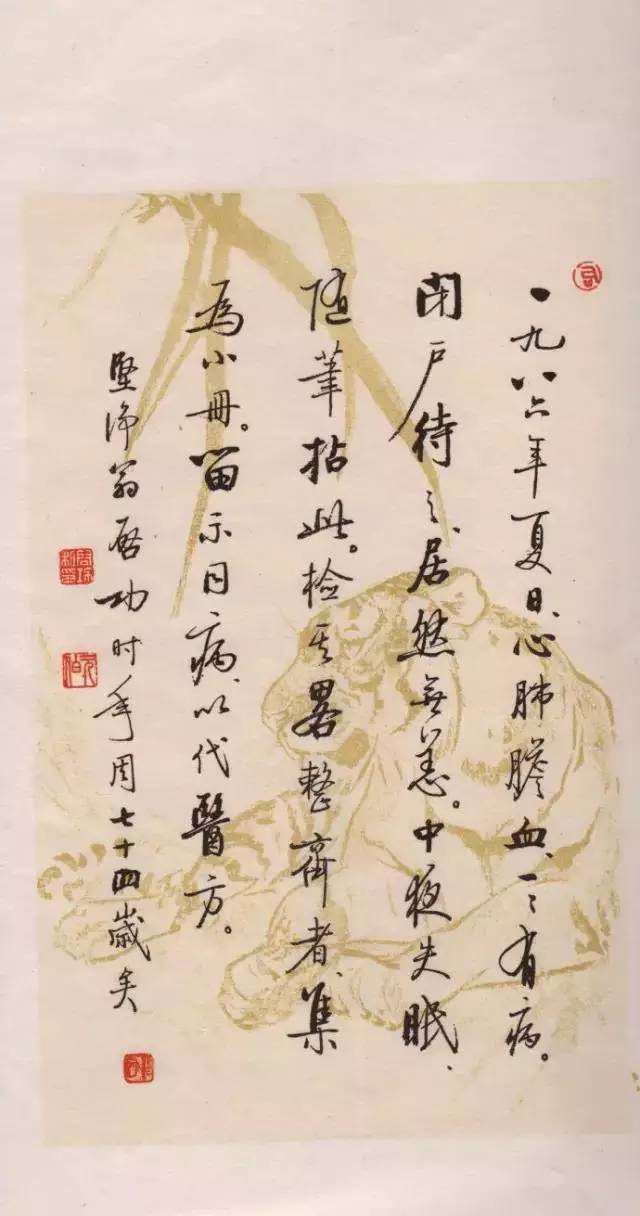 一九八六年夏日、心肺膽血、一々有病。
閉戶待之、居然無恙。中夜失眠、
随筆拈此。檢其畧整齊者、集
為小冊。留示同病、以代醫方。
堅浄翁啓功時年周七十四歲矣